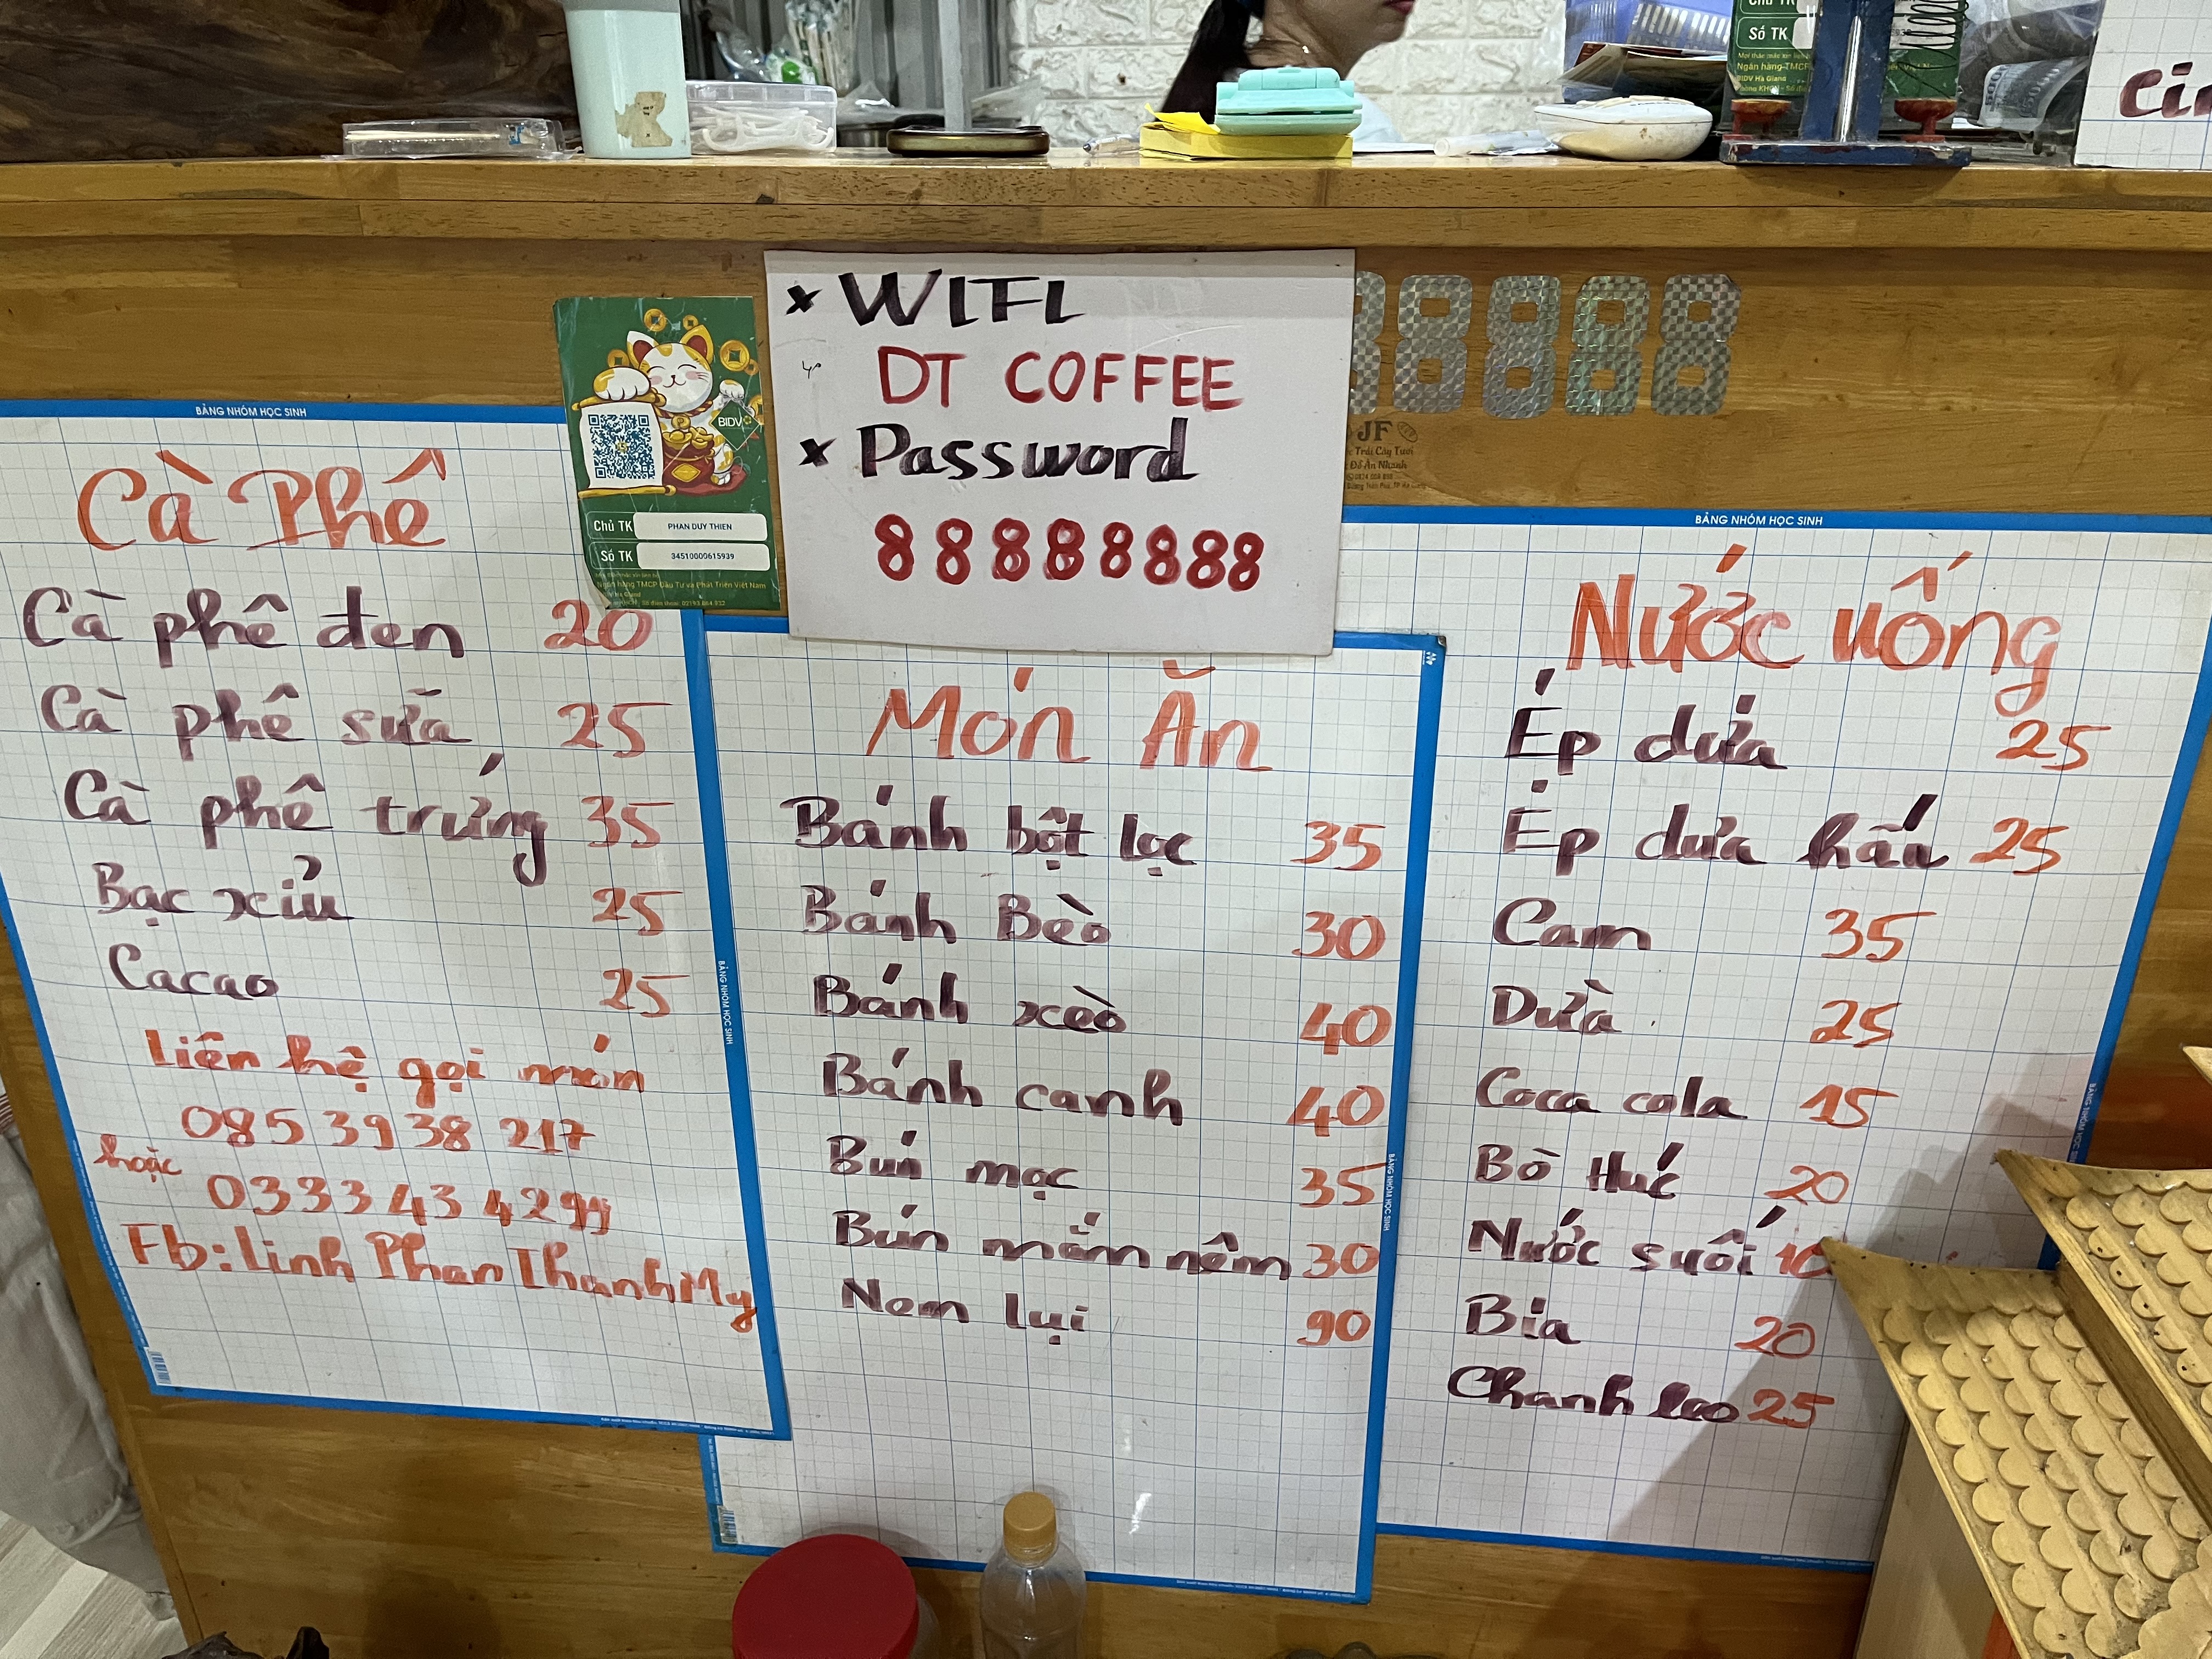 Chủ TK
Số TK
Ngân hàng TMCP
BIDV Ha Giang
× WIFI
DT COFFEE
× Password
88888888
8888
JF
Trái Cây Tươi
Đồ Ăn Nhanh
BIDV
Chủ TK PHAN DUY THIEN
Số TK 34510000615939
Ngân hàng TMCP Đầu Tư và Phát Triển Việt Nam
BẢNG NHÓM HỌC SINH
Cà Phê
Cà phê đen 20
Cà phê sữa 25
Cà phê trứng 35
Bạc xỉu 25
Cacao 25
Liên hệ gọi món
085 39 38 217
hoặc
0333 43 4299
Fb: Linh Phan Thanh My
BẢNG NHÓM HỌC SINH
Món Ăn
Bánh bột lọc 35
Bánh Bèo 30
Bánh xèo 40
Bánh canh 40
Bún mọc 35
Bún mắm nêm 30
Nem lụi 90
BẢNG NHÓM HỌC SINH
BẢNG NHÓM HỌC SINH
Nước uống
Ép dứa 25
Ép dưa hấu 25
Cam 35
Dừa 25
Coca cola 15
Bò Húc 20
Nước suối 10
Bia 20
Chanh leo 25
BẢNG NHÓM HỌC SINH